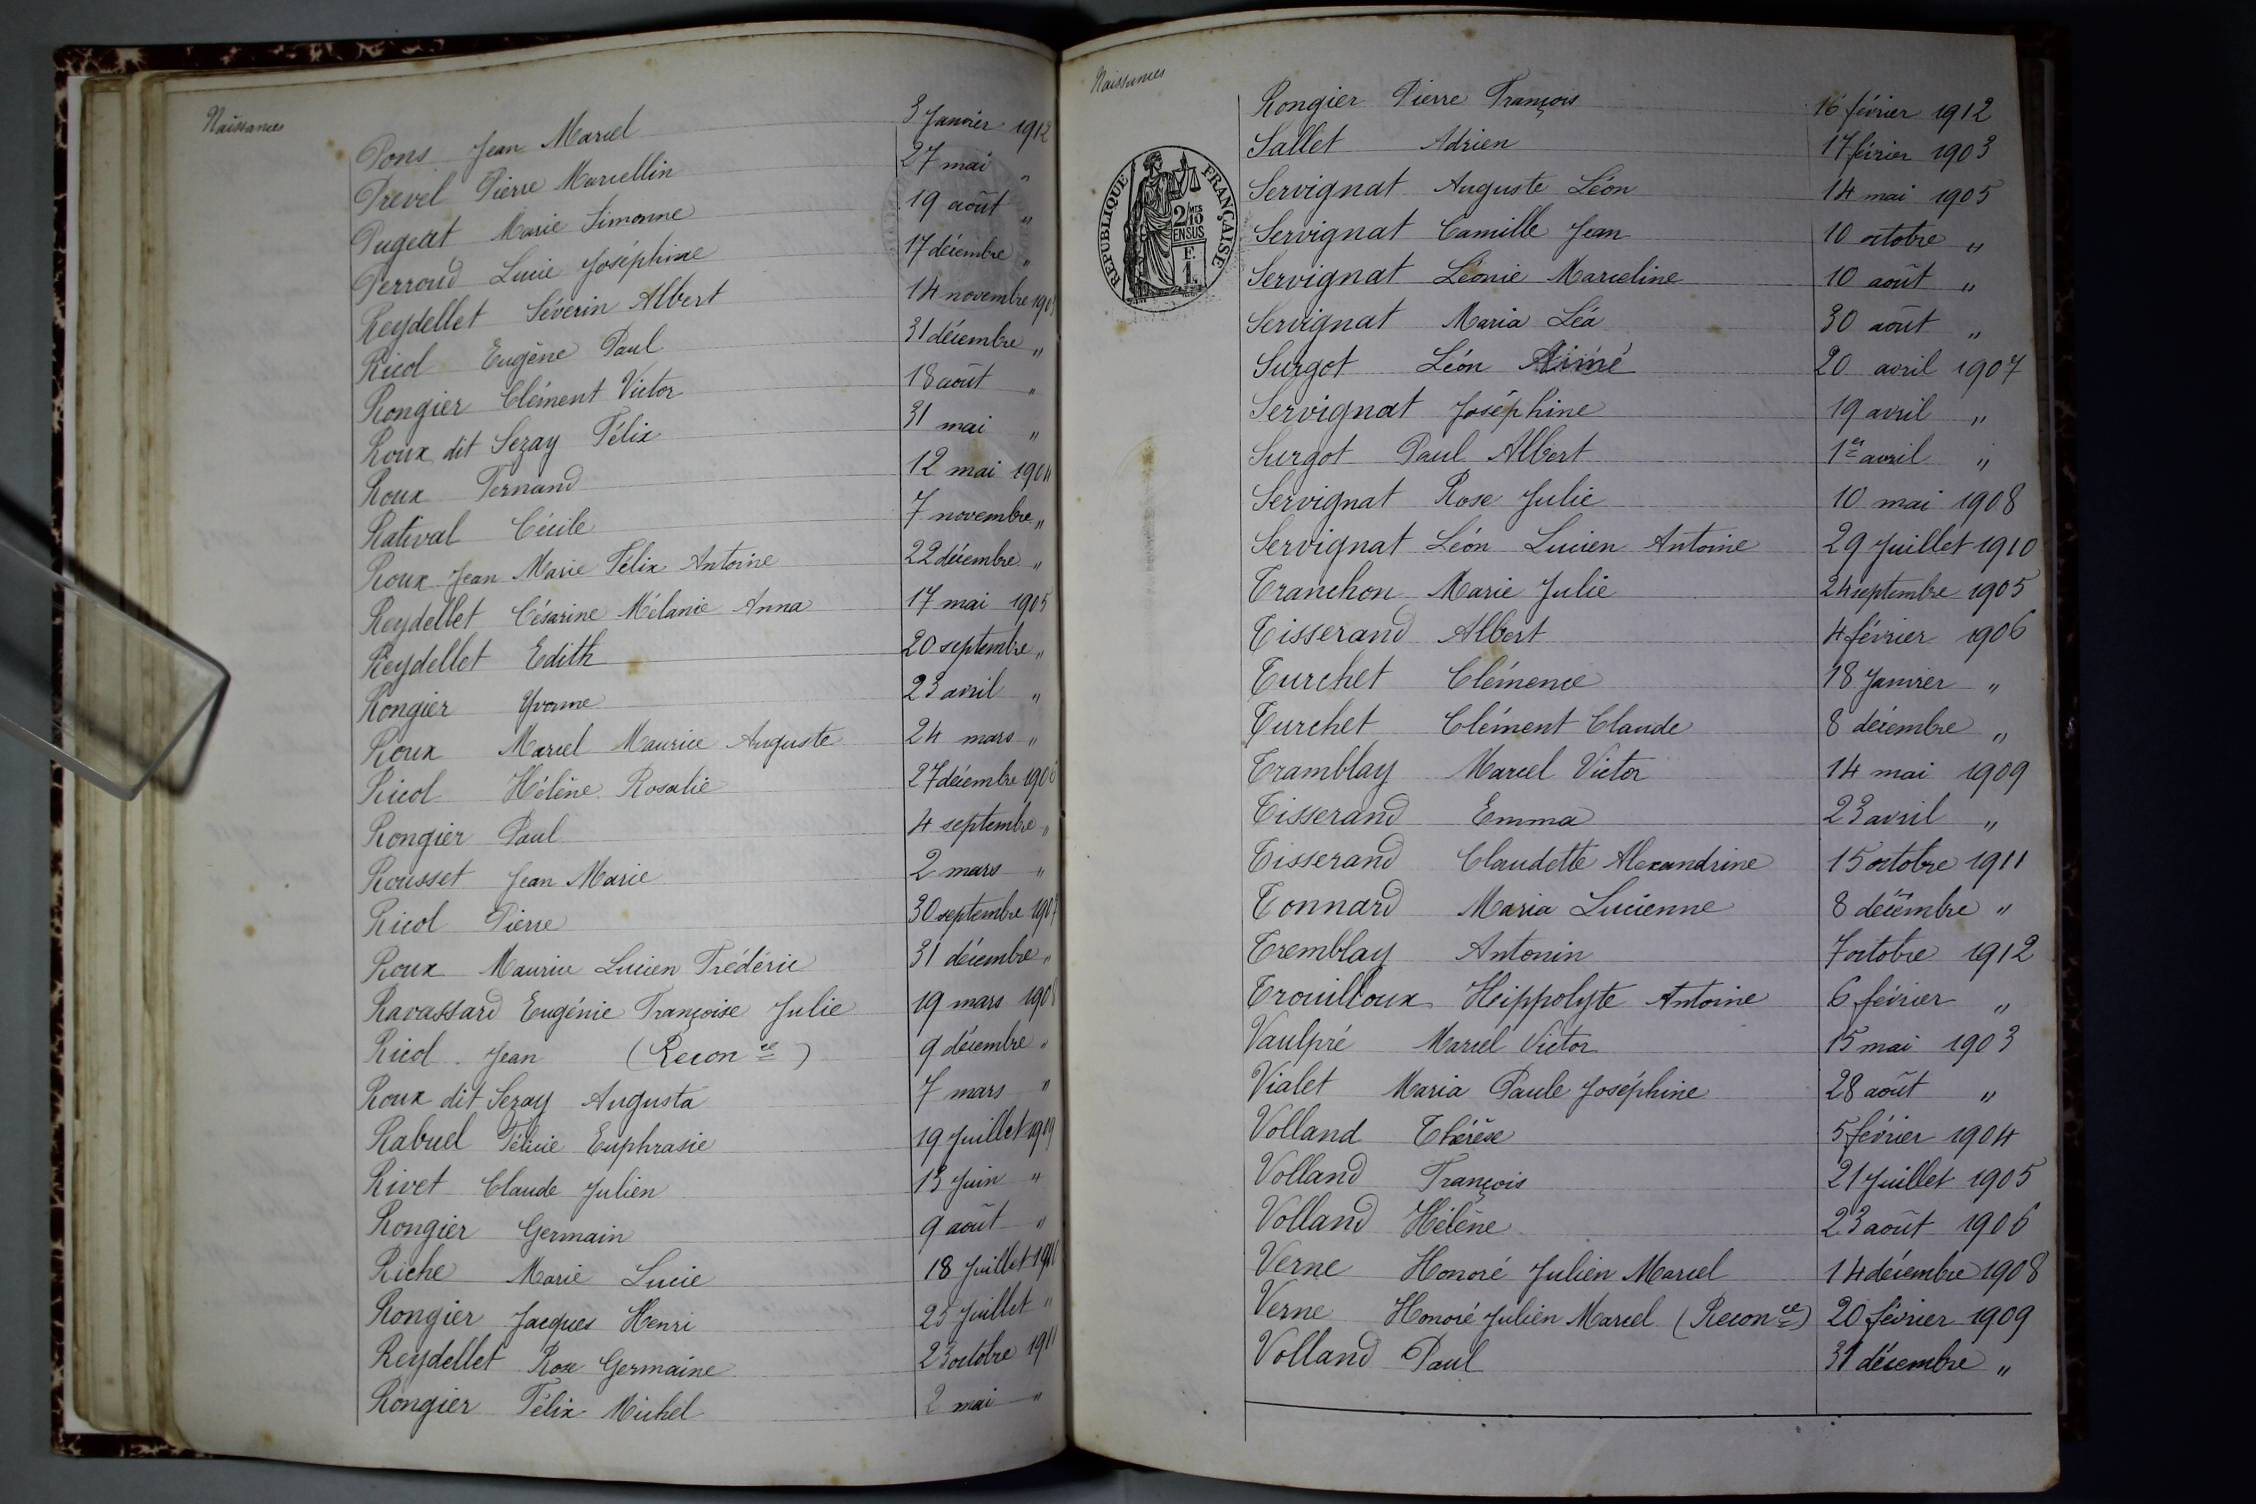 Naissances
Pons Jean Marcel 3 Janvier 1912
Prevel Pierre Marcellin 27 mai "
Pugeat Marie Simonne 19 août "
Perroud Lucie Joséphine 17 décembre "
Reydellet Séverin Albert 14 novembre
Ricol Eugène Paul 31 décembre "
Rongier Clément Victor 18 août "
Roux dit Sezay Félix 31 mai "
Roux Fernand 12 mai 1904
Ratival Cécile 7 novembre "
Roux Jean Marie Félix Antoine 22 décembre "
Reydellet Césarine Mélanie Anna 17 mai 1905
Reydellet Edith 20 septembre "
Rongier Yvonne 23 avril "
Roux Marcel Maurice Auguste 24 mars "
Ricol Hélène Rosalie 27 décembre 1906
Rongier Paul 4 septembre "
Rousset Jean Marie 2 mars "
Ricol Pierre 30 septembre 1907
Roux Maurice Lucien Frédéric 31 décembre "
Ravassard Eugénie Françoise Julie 19 mars 1908
Ricol Jean (Recon ce) 9 décembre "
Roux dit Sezay Augusta 7 mars "
Rabuel Félicie Euphrasie 19 Juillet 1909
Rivet Claude Julien 13 Juin "
Rongier Germain 9 août "
Riche Marie Lucie 18 Juillet
Rongier Jacques Henri 25 Juillet "
Reydellet Rose Germaine 23 octobre 1911
Rongier Félix Michel 2 mai "
Naissances
RÉPUBLIQUE FRANÇAISE
2/10
EN SUS
F.
1.
Rongier Pierre François 16 février 1912
Sallet Adrien 17 février 1903
Servignat Auguste Léon 14 mai 1905
Servignat Camille Jean 10 octobre "
Servignat Léonie Marceline 10 août "
Servignat Maria Léa 30 août "
Surgot Léon Aimé 20 avril 1907
Servignat Joséphine 19 avril "
Surgot Paul Albert 1er avril "
Servignat Rose Julie 10 mai 1908
Servignat Léon Lucien Antoine 29 Juillet 1910
Tranchon Marie Julie 24 septembre 1905
Tisserand Albert 4 février 1906
Turchet Clémence 18 Janvier "
Turchet Clément Claude 8 décembre "
Tramblay Marcel Victor 14 mai 1909
Tisserand Emma 23 avril "
Tisserand Claudette Alexandrine 15 octobre 1911
Tonnard Maria Lucienne 8 décembre "
Tremblay Antonin 7 octobre 1912
Trouilloux Hippolyte Antoine 6 février "
Vaulpré Marcel Victor 15 mai 1903
Vialet Maria Paule Joséphine 28 août "
Volland Thérèse 5 février 1904
Volland François 21 Juillet 1905
Volland Hélène 23 août 1906
Verne Honoré Julien Marcel 14 décembre 1908
Verne Honoré Julien Marcel (Recon ce) 20 février 1909
Volland Paul 31 décembre "